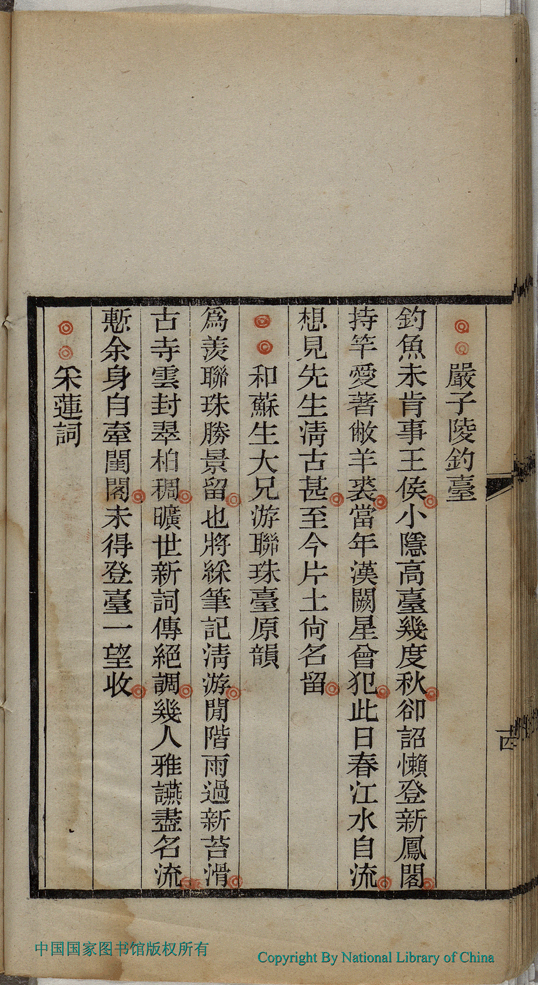 嚴子陵釣臺
釣魚未肯事王侯小隱高臺幾度秋卻詔懶登新鳳閣
持竿愛著敝羊裘當年漢闕星曾犯此日春江水自流
想見先生淸古甚至今片土尙名留
和蘇生大兄游聯珠臺原韻
爲羨聯珠勝景留也將綵筆記淸游閒階雨過新苔滑
古寺雲封翠柏稠曠世新詞傳絕調幾人雅讌盡名流
慙余身自牽閨閣未得登臺一望收
采蓮詞
中国国家图书馆版权所有
Copyright By National Library of China